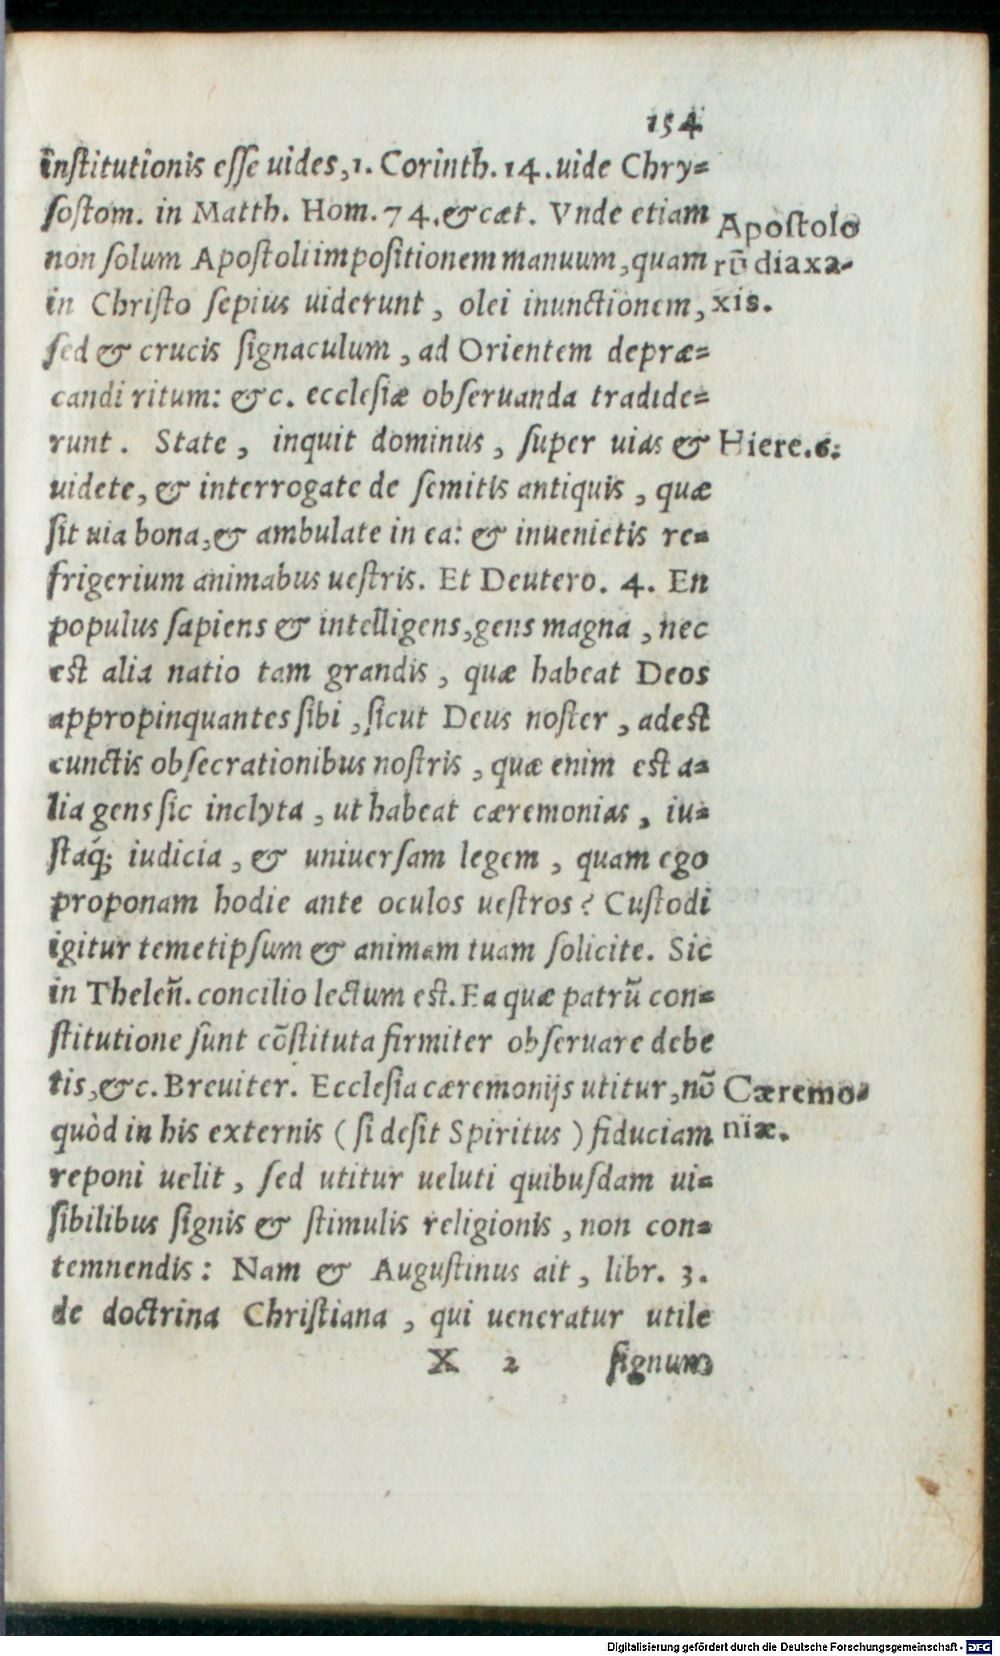 154
institutionis esse uides, 1. Corinth. 14. uide Chry=
sostom. in Matth. Hom. 74. & cæt. Vnde etiam
non solum Apostoli impositionem manuum, quam
in Christo sepius uiderunt, olei inunctionem,
sed & crucis signaculum, ad Orientem depræ=
candi ritum: &c. ecclesiæ obseruanda tradide=
runt. State, inquit dominus, super uias &
uidete, & interrogate de semitis antiquis, quæ
sit uia bona, & ambulate in ea: & inuenietis re=
frigerium animabus uestris. Et Deutero. 4. En
populus sapiens & intelligens, gens magna, nec
est alia natio tam grandis, quæ habeat Deos
appropinquantes sibi, sicut Deus noster, adest
cunctis obsecrationibus nostris, quæ enim est a=
lia gens sic inclyta, ut habeat cæremonias, iu=
staq́; iudicia, & uniuersam legem, quam ego
proponam hodie ante oculos uestros? Custodi
igitur temetipsum & animam tuam solicite. Sic
in Thelen̄. concilio lectum est. Ea quæ patrū con=
stitutione sunt cōstituta firmiter obseruare debe
tis, &c. Breuiter. Ecclesia cæremonijs utitur, nō
quòd in his externis (si desit Spiritus) fiduciam
reponi uelit, sed utitur ueluti quibusdam ui=
sibilibus signis & stimulis religionis, non con=
temnendis: Nam & Augustinus ait, libr. 3.
de doctrina Christiana, qui ueneratur utile
X 2 signum
Apostolo
rū diaxa-
xis.
Hiere. 6.
Cæremo-
niæ.
Digitalisierung gefördert durch die Deutsche Forschungsgemeinschaft - DFG